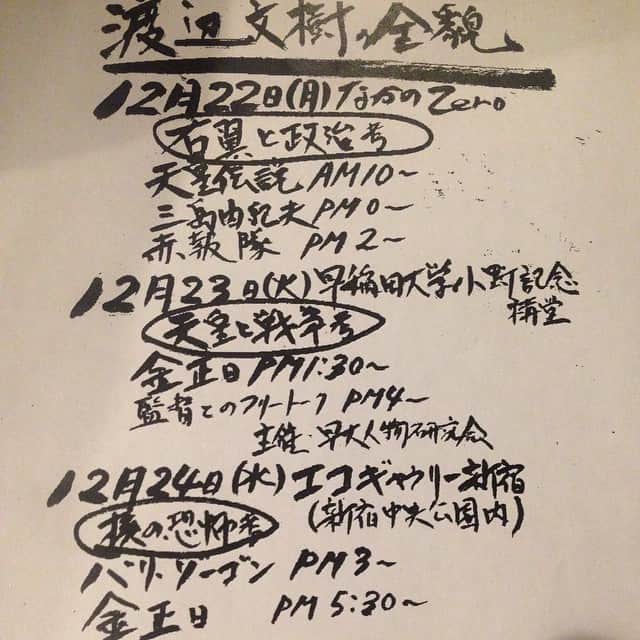 渡辺文樹の全貌
12月22日(月)なかのZero
右翼と政治考
天皇伝説 AM10〜
三島由紀夫 PM0〜
赤報隊 PM2〜
12月23日(火)早稲田大学小野記念
講堂
天皇と戦争考
金正日 PM1:30〜
監督とのフリートーク PM4〜
主催・早大人物研究会
12月24日(水)エコギャラリー新宿
(新宿中央公園内)
核の恐怖考
バリゾーゴン PM3〜
金正日 PM5:30〜